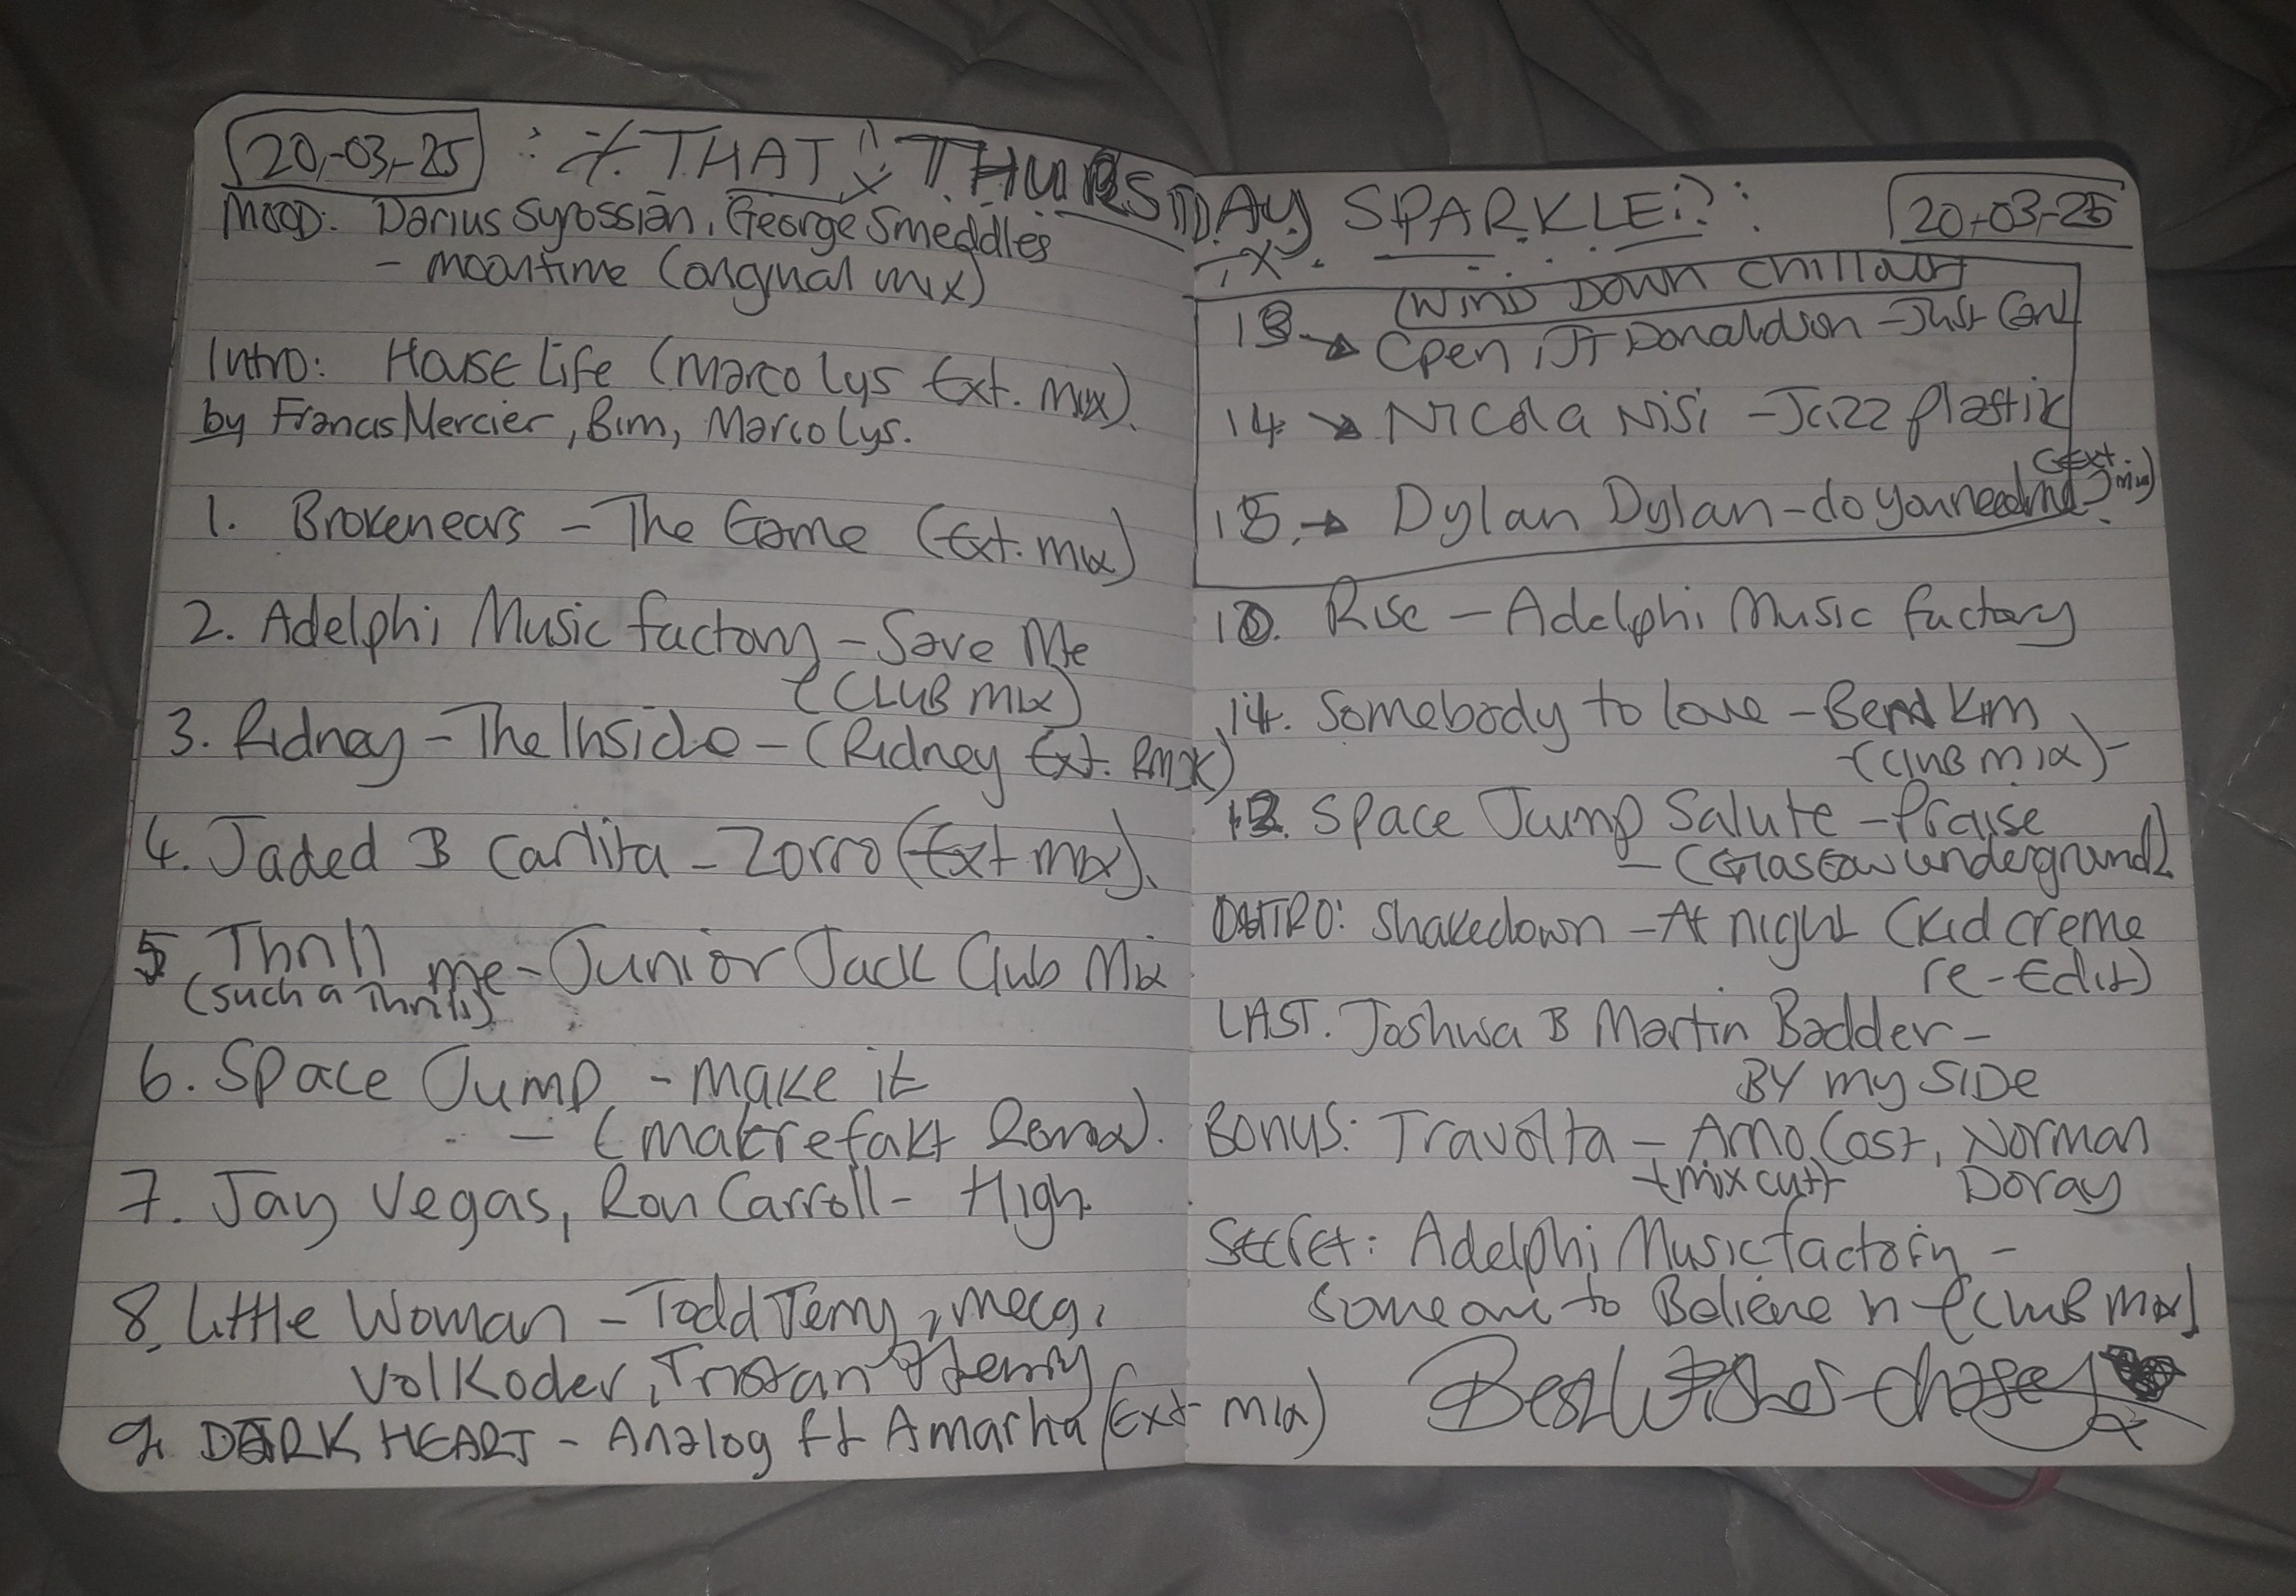 20-03-25 : THAT THURSDAY SPARKLE:
MOOD: Darius Syrossian, George Smeddles
- moontime (original mix)
Intro: House Life (Marco Lys Ext. Mix).
by Francis Mercier, Bim, Marco Lys.
1. Brokenears - The Game (Ext. mix)
2. Adelphi Music factory - Save Me
(CLUB mix)
3. Ridney - The Inside - (Ridney Ext. Rmx)
4. Jaded B Carlita - Zorro (Ext mix).
5 Thrill me - Junior Jack Club Mix
(such a Thrill)
6. Space Jump - make it
- (makrefakt Remix).
7. Jay Vegas, Ron Carroll - High.
8. Little Woman - Todd Terry, meca,
Volkoder, Tristan Henry
9. DARK HEART - Analog ft Amarha (Ext mix)
20-03-25
Wind Down Chillout
13 → Cpen, JT Donaldson - Just
14 → Nicola Nisi - Jazz plastik
15. → Dylan Dylan - do you need me? (Ext. mix)
10. Rise - Adelphi Music factory
14. Somebody to love - Ben Kim
- (CluB mix) -
12. Space Jump Salute - Praise
- (Glascow underground)
OUTRO: Shakedown - At night (Kid creme
re-Edit)
LAST. Joshwa B Martin Badder -
BY my SIDE
Bonus: Travolta - Arno Cost, Norman
(mix cut) Doray
Secret: Adelphi Music factory -
Someone to Believe in - [CluB Mix]
Best Wishes